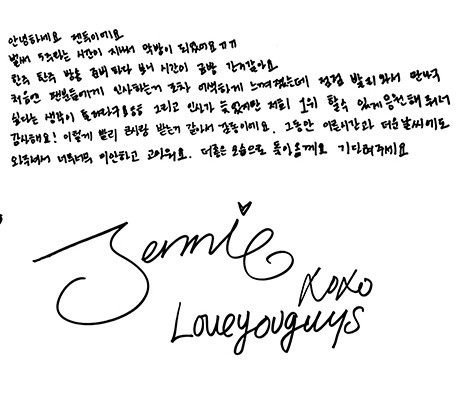 안녕하세요 젠득이에요
벌써 5주라는 시간이 지나서 막방이 되었어요 ㄲㄲ
한주 한주 방송 준비 하다 보니 시간이 금방 간거같아요
처음엔 팬분들에게 인사하는거 조차 어색하게 느껴졌는데 점점 빨리와서 만나구
싶다는 생각이 들더라구요ㅎㅎ 그리고 인사가 늦었지만 저희 1위 할수 있게 응원해 줘서
감사해요! 이렇게 빨리 큰사랑 받는거 같아서 감동이에요. 그동안 이른시간과 더운날씨에도
와주셔서 너무너무 미안하고 고마워요. 더좋은 모습으로 돌아올께요 기다려주세요
Jennie
xoxo
Loveyouguys